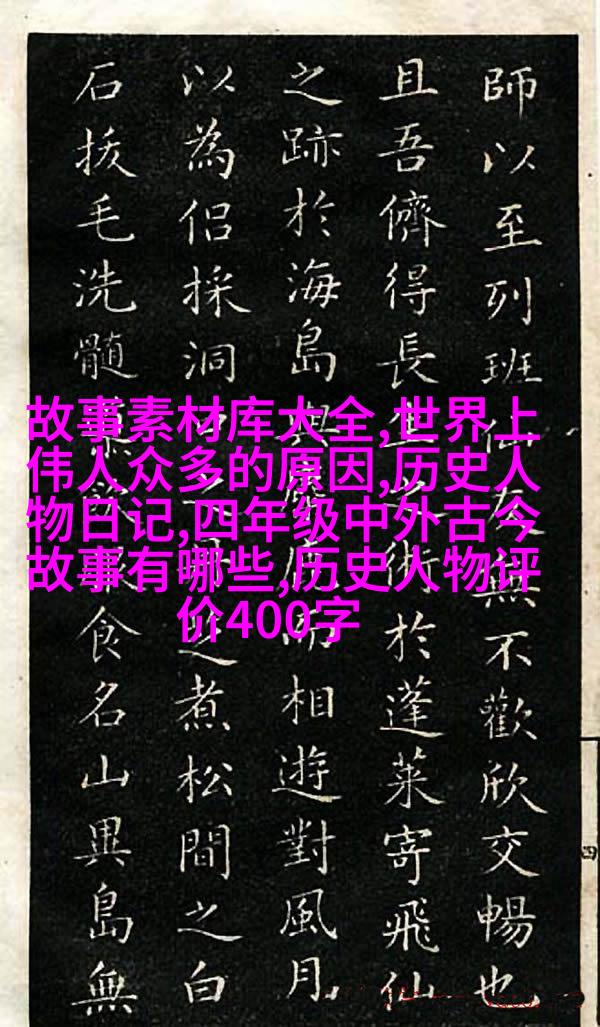 師以至列班仙友無不歡欣交暢也
且吾儕得長生之術於蓬萊寄飛仙
之跡於海島與麋鹿而相遊對風月
以為侶採洞中之芝煮松間之白
石拔毛洗髓飲食名山異島無
故事素材库大全,世界上
伟人众多的原因,历史人
物日记,四年级中外古今
故事有哪些,历史人物评
价400字
四